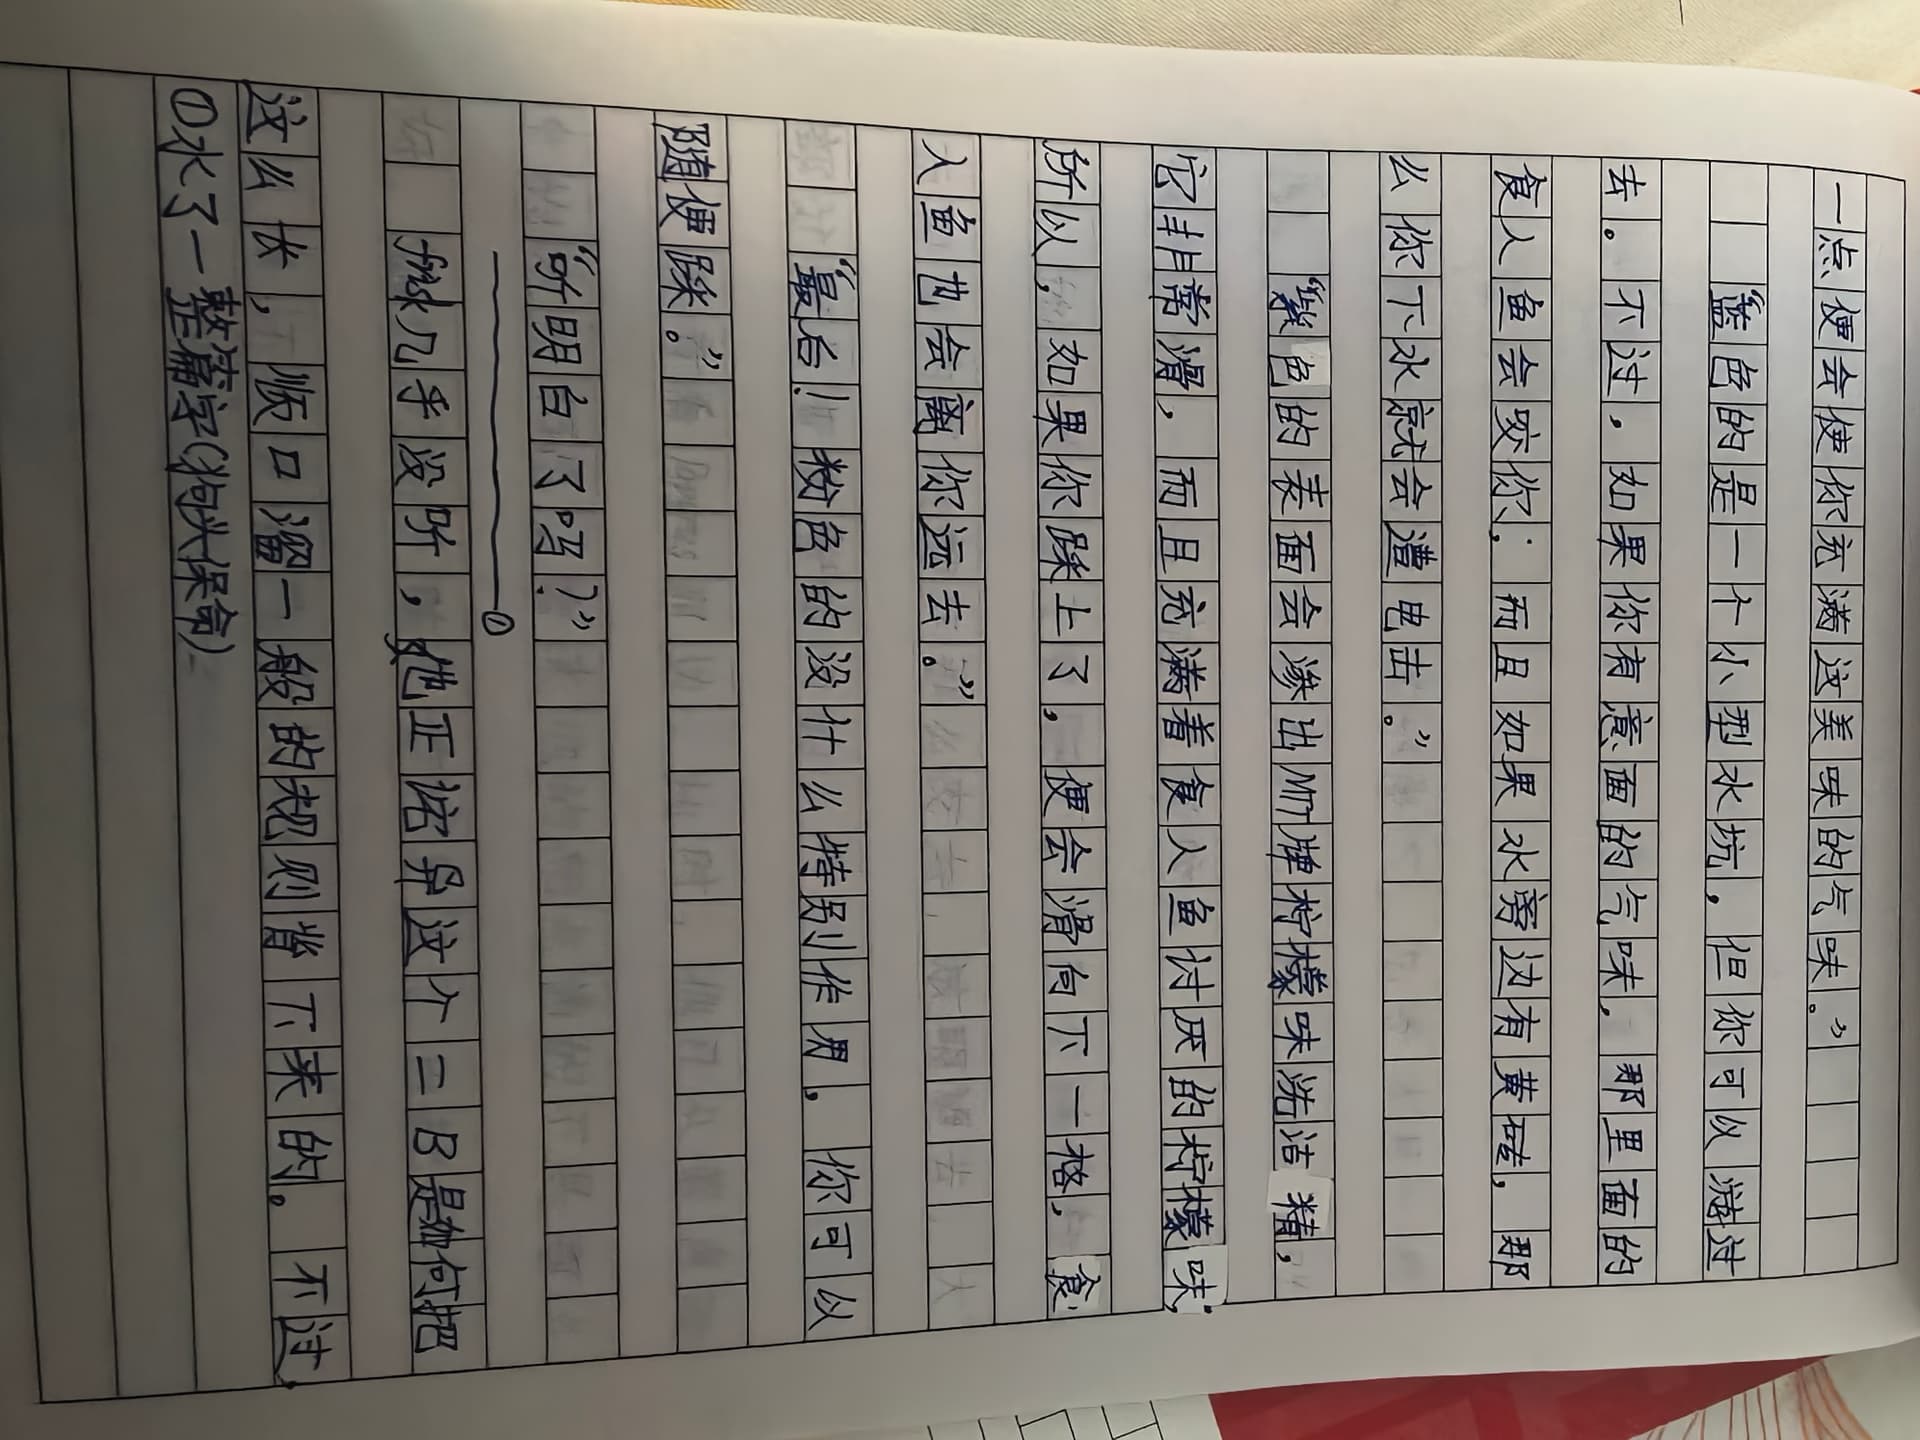 一点便会使你充满这美味的气味。”
“蓝色的是一个小型水坑，但你可以游过
去。不过，如果你有意面的气味，那里面的
食人鱼会咬你；而且如果水旁边有黄砖，那
么你下水就会遭电击。”
“紫色的表面会渗出牌柠檬味洗洁精，
它非常滑，而且充满着食人鱼讨厌的柠檬味，
所以，如果你踩上了，便会滑向下一格，食
人鱼也会离你远去。”
“最后！粉色的没什么特别作用，你可以
随便踩。”
“听明白了吗？”
几乎没听，他正诧异这个二B是如何把
这么长，顺口溜一般的规则背下来的。不过
①水了一整篇字(狗头保命)
①